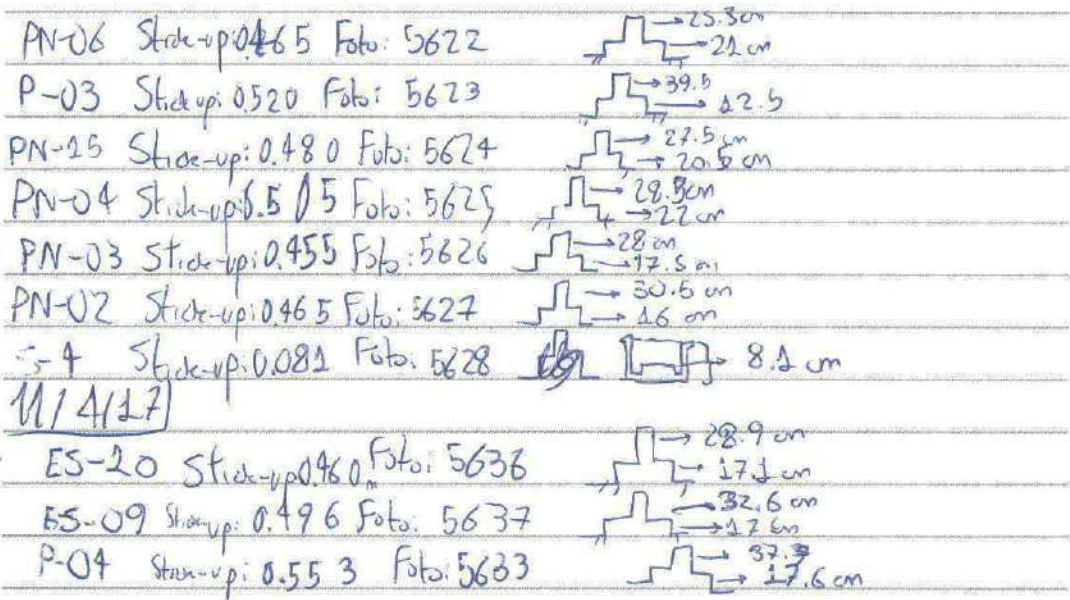 PN-06 Stick-up: 0.465 Foto: 5622 → 25.3cm
→ 21 cm
P-03 Stick up: 0.520 Foto: 5623 → 39.5
→ 12.5
PN-15 Stick-up: 0.480 Foto: 5624 → 27.5 cm
→ 20.5 cm
PN-04 Stick-up: 0.505 Foto: 5625 → 28.5cm
→ 22 cm
PN-03 Stick-up: 0.455 Foto: 5626 → 28 cm
→ 17.5 cm
PN-02 Stick-up: 0.465 Foto: 5627 → 30.5 cm
→ 16 cm
Stick-up: 0.081 Foto: 5628 → 8.1 cm
11/4/17
ES-10 Stick-up 0.460 m Foto: 5636 → 28.9 cm
→ 17.1 cm
ES-09 Stick-up: 0.496 Foto: 5637 → 32.6 cm
→ 17 cm
P-04 Stick-up: 0.553 Foto: 5633 → 37.7
→ 17.6 cm